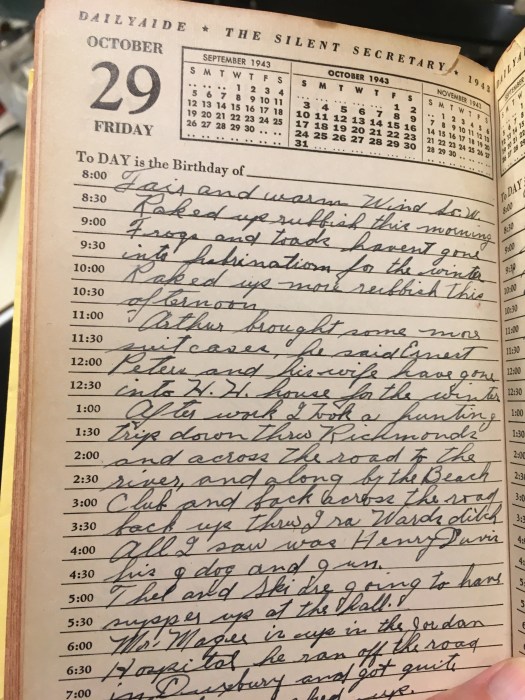 DAILYAIDE ★ THE SILENT SECRETARY ★ 1943
OCTOBER
29
FRIDAY
SEPTEMBER 1943
S M T W T F S
.. .. .. 1 2 3 4
5 6 7 8 9 10 11
12 13 14 15 16 17 18
19 20 21 22 23 24 25
26 27 28 29 30 .. ..
OCTOBER 1943
S M T W T F S
.. .. .. .. .. 1 2
3 4 5 6 7 8 9
10 11 12 13 14 15 16
17 18 19 20 21 22 23
24 25 26 27 28 29 30
31 .. .. .. .. .. ..
NOVEMBER 1943
S M T W T F S
.. 1 2 3 4 5 6
7 8 9 10 11 12 13
14 15 16 17 18 19 20
21 22 23 24 25 26 27
28 29 30 .. .. .. ..
To DAY is the Birthday of
8:00 Fair and warm Wind So. W.
8:30 Raked up rubbish this morning
9:00 Frogs and toads havent gone
9:30 into for the winter
10:00 Raked up more rubbish this
10:30 afternoon
11:00 Arthur brought some more
11:30 suit cases, he said Ernest
12:00 Peters and his wife have gone
12:30 into H. H. house for the winter
1:00 After work I took a hunting
1:30 trip down thru Richmonds
2:00 and across the road to the
2:30 river, and along by the Beach
3:00 Club and back across the road
3:30 back up thru Ira Wards ditch
4:00 All I saw was Henry Davis
4:30 his g dog and gun.
5:00 Thel and Ski are going to have
5:30 supper up at the hall.
6:00 Mr. Magee is up in the Jordan
6:30 Hospital, he ran off the road
7:00 in Duxbury and got quite